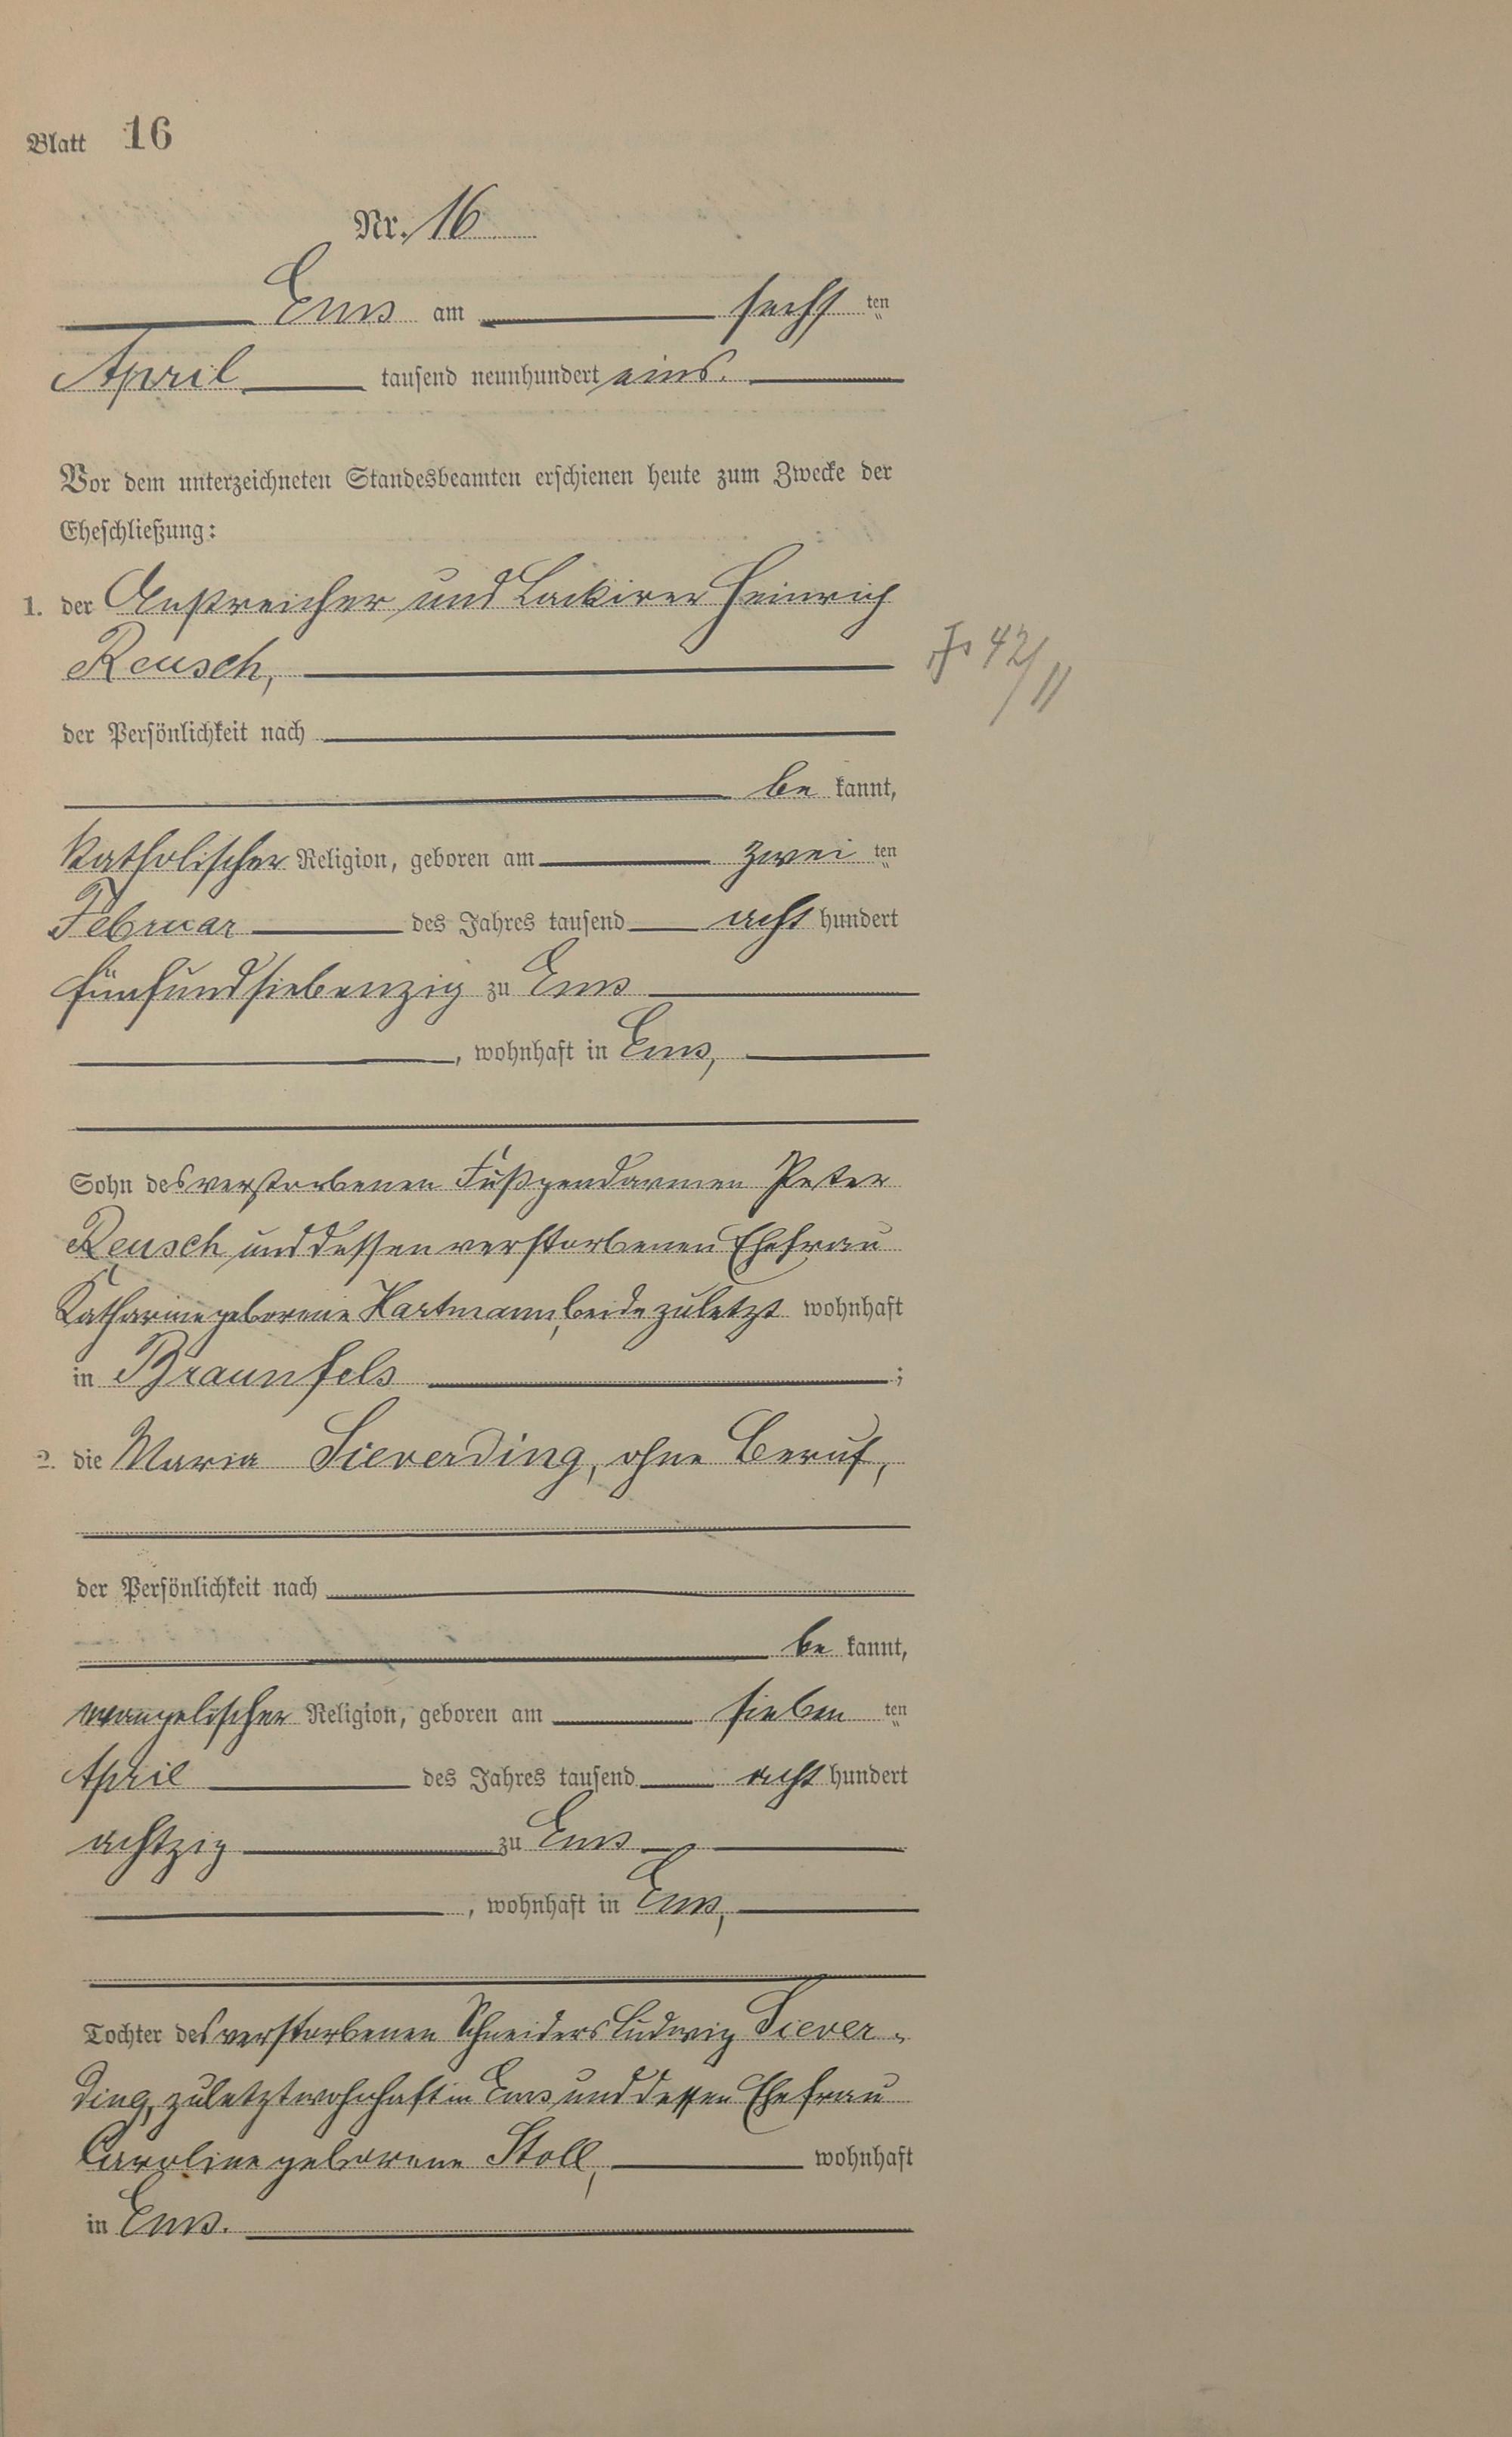 Blatt 16
Nr. 16
Ems am sechsten
April tausend neunhundert eins.
Vor dem unterzeichneten Standesbeamten erschienen heute zum Zwecke der
Eheschließung:
1. der Anstreicher und Lackirer Heinrich
Reusch,
42/11
der Persönlichkeit nach
be kannt,
katholischer Religion, geboren am zweiten
Februar des Jahres tausend acht hundert
fünfundsiebenzig zu Ems
, wohnhaft in Ems,
Sohn des verstorbenen Fußgendarmen Peter
Reusch und dessen verstorbenen Ehefrau
Katharine geborene Hartmann, beide zuletzt wohnhaft
in Braunfels ;
2. die Maria Sieverding, ohne Beruf,
der Persönlichkeit nach
be kannt,
evangelischer Religion, geboren am siebenten
April des Jahres tausend acht hundert
achtzig zu Ems
, wohnhaft in Ems,
Tochter des verstorbenen Schneiders Ludwig Siever-
ding, zuletzt wohnhaft in Ems und dessen Ehefrau
Caroline geborene Stoll, wohnhaft
in Ems.